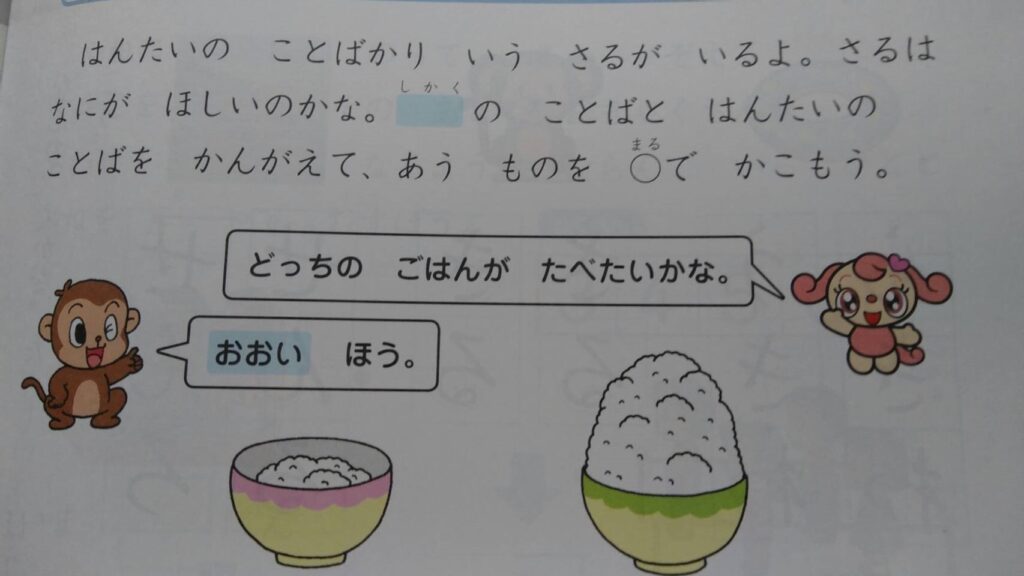 はんたいの ことばかり いう さるが いるよ。さるは
なにが ほしいのかな。しかくの ことばと はんたいの
ことばを かんがえて、あう ものを ○まるで かこもう。
どっちの ごはんが たべたいかな。
おおい ほう。